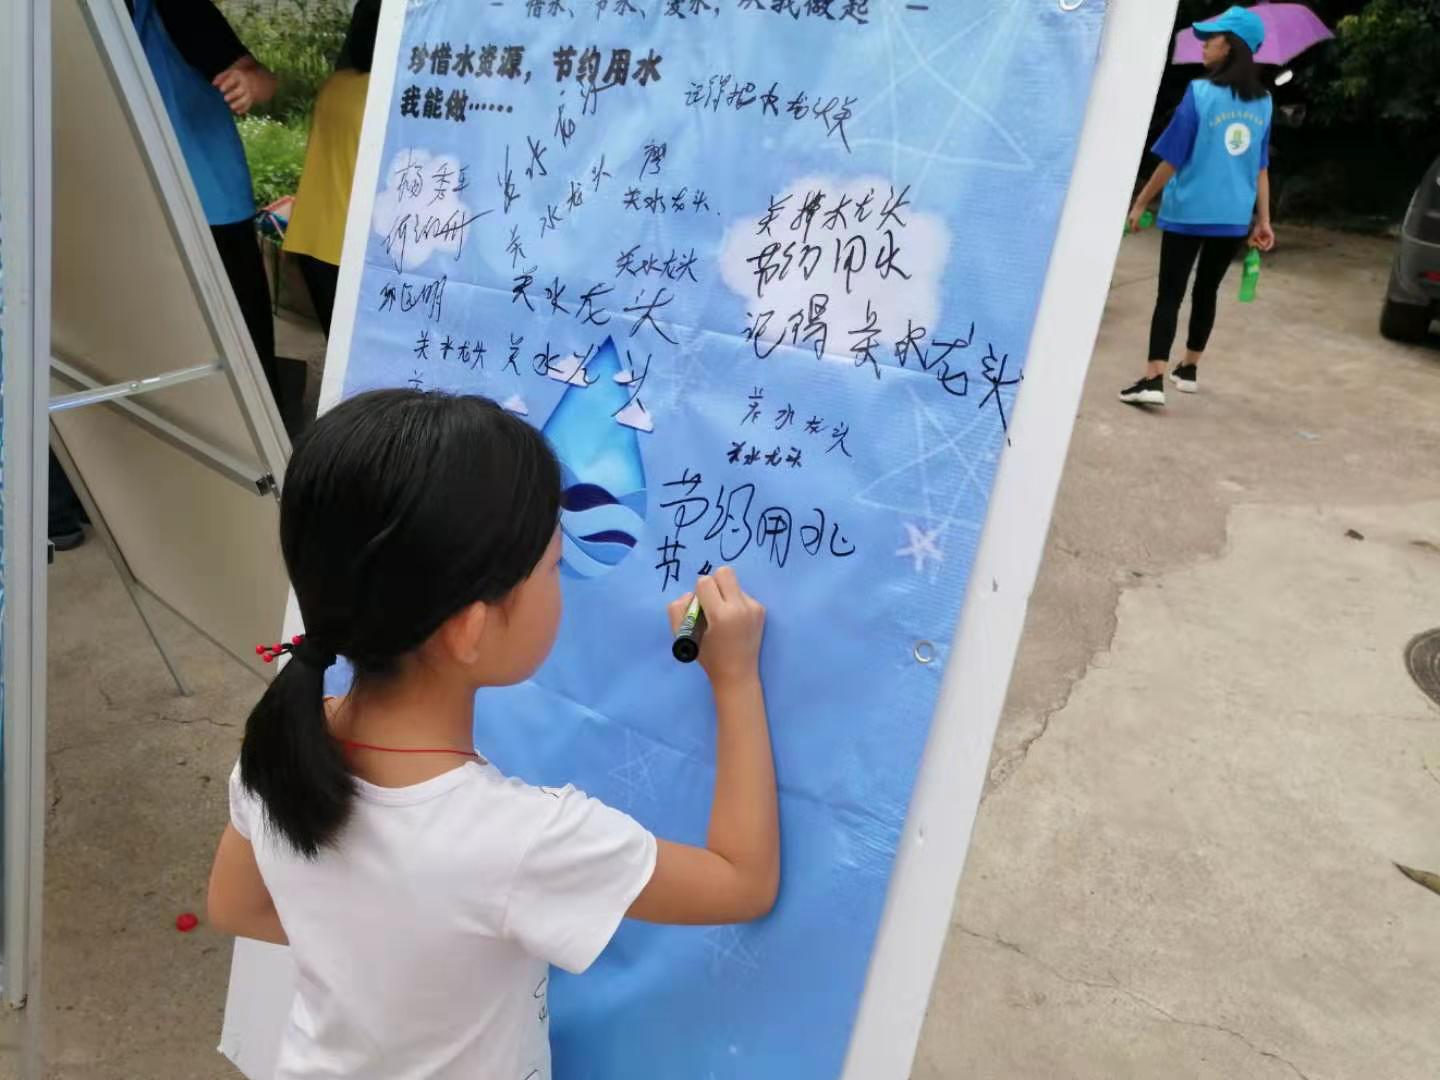 惜水、节水、爱水，从我做起
珍惜水资源，节约用水
我能做……
记得把水龙头关
廖
关水龙头
关水龙头.
关掉水龙头
节约用水
关水龙头
关水龙头
记得关水龙头
关水龙头
关水龙头
关水龙头
关水龙头
节约用水
节